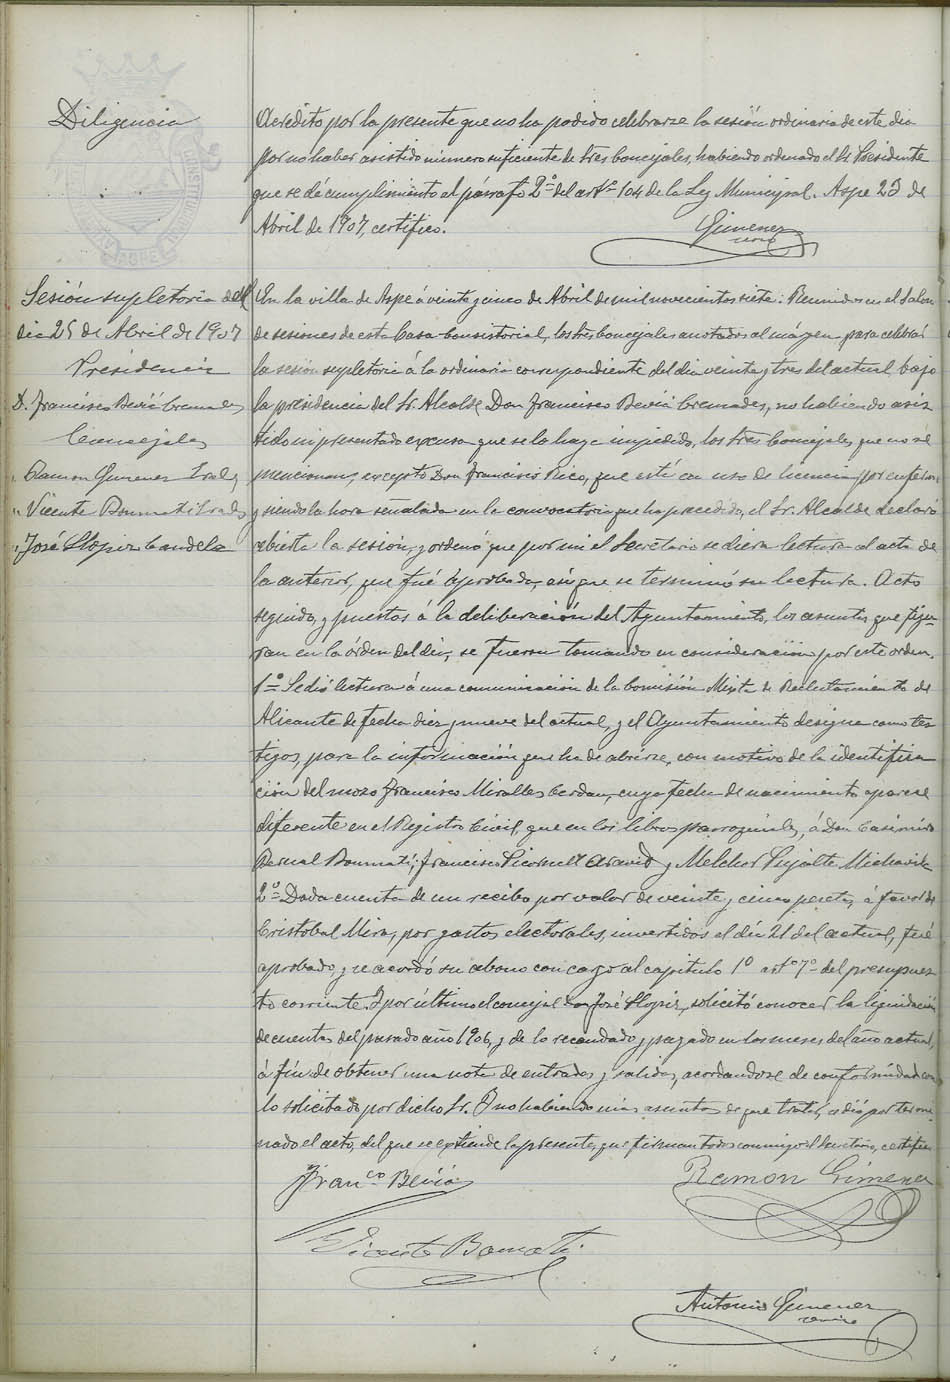 Diligencia
Acredito por la presente que no ha podido celebrarse la sesión ordinaria de este dia
por no haber asistido número suficiente de Sres Concejales, habiendo ordenado el Sr Presidente
que se dé cumplimiento al párrafo 2º del artº 104 de la Ley Municipal. Aspe 23 de
Abril de 1907, certifico.
Gimenez
Sesión supletoria del
dia 25 de Abril de 1907
Presidencia
D. Francisco Beviá Cremades
Concejales
" Ramon Gimenez
" Vicente Bonmati
" José Llopiz Candela
En la villa de Aspe á veinte y cinco de Abril de mil novecientos siete: Reunidos en el Salon
de sesiones de esta Casa Consistorial, los Sres Concejales anotados al márgen, para celebrar
la sesión supletoria á la ordinaria correspondiente del dia veinte y tres del actual, bajo
la presidencia del Sr. Alcalde Don Francisco Beviá Cremades, no habiendo asis
tido ni presentado excusa que se lo haya impedido, los Sres Concejales que no se
mencionan, excepto Don Francisco Rico, que está en uso de licencia por enfermo
y siendo la hora señalada en la convocatoria que ha precedido, el Sr. Alcalde declaró
abierta la sesión, y ordenó que por mi el Secretario se diera lectura al acta de
la anterior, que fué aprobada, asi que se terminó su lectura. Acto
seguido, y puestos á la deliberación del Ayuntamiento, los asuntos que figu-
ran en la órden del dia, se fueron tomando en consideración por este orden.
1º Se dió lectura á una comunicación de la Comisión Mixta de Reclutamiento de
Alicante de fecha diez y nueve del actual, y el Ayuntamiento designa como tes
tigos, para la información que ha de abrirse, con motivo de la identifica
ción del mozo Francisco Miralles Cerdan, cuya fecha de nacimiento aparece
diferente en el Registro Civil, que en los libros parroquiales, á Don Casimiro
Bernal Bonmati; Francisco Aravid y Melchor Pujalte
2º Dada cuenta de un recibo por valor de veinte y cinco pesetas, á favor de
Cristobal Mira, por gastos electorales, invertidos el dia 21 del actual, fué
aprobado, y se acordó su abono con cargo al capitulo 1º artº 7º del presupues
to corriente. Y por último el concejal Don José Llopiz, solicitó conocer la liquidación
de cuentas del pasado año 1906, y de lo recaudado y pagado en los meses del año actual,
á fin de obtener una nota de entradas y salidas, acordandose de conformidad con
lo solicitado por dicho Sr. Y no habiendo mas asuntos de que tratar, se dió por termi-
nado el acto, del que se extiende la presente, que firman todos conmigo el Secretario, certifico
Francº Beviá
Ramon Gimenez
Vicente Bonmati
Antonio Gimenez